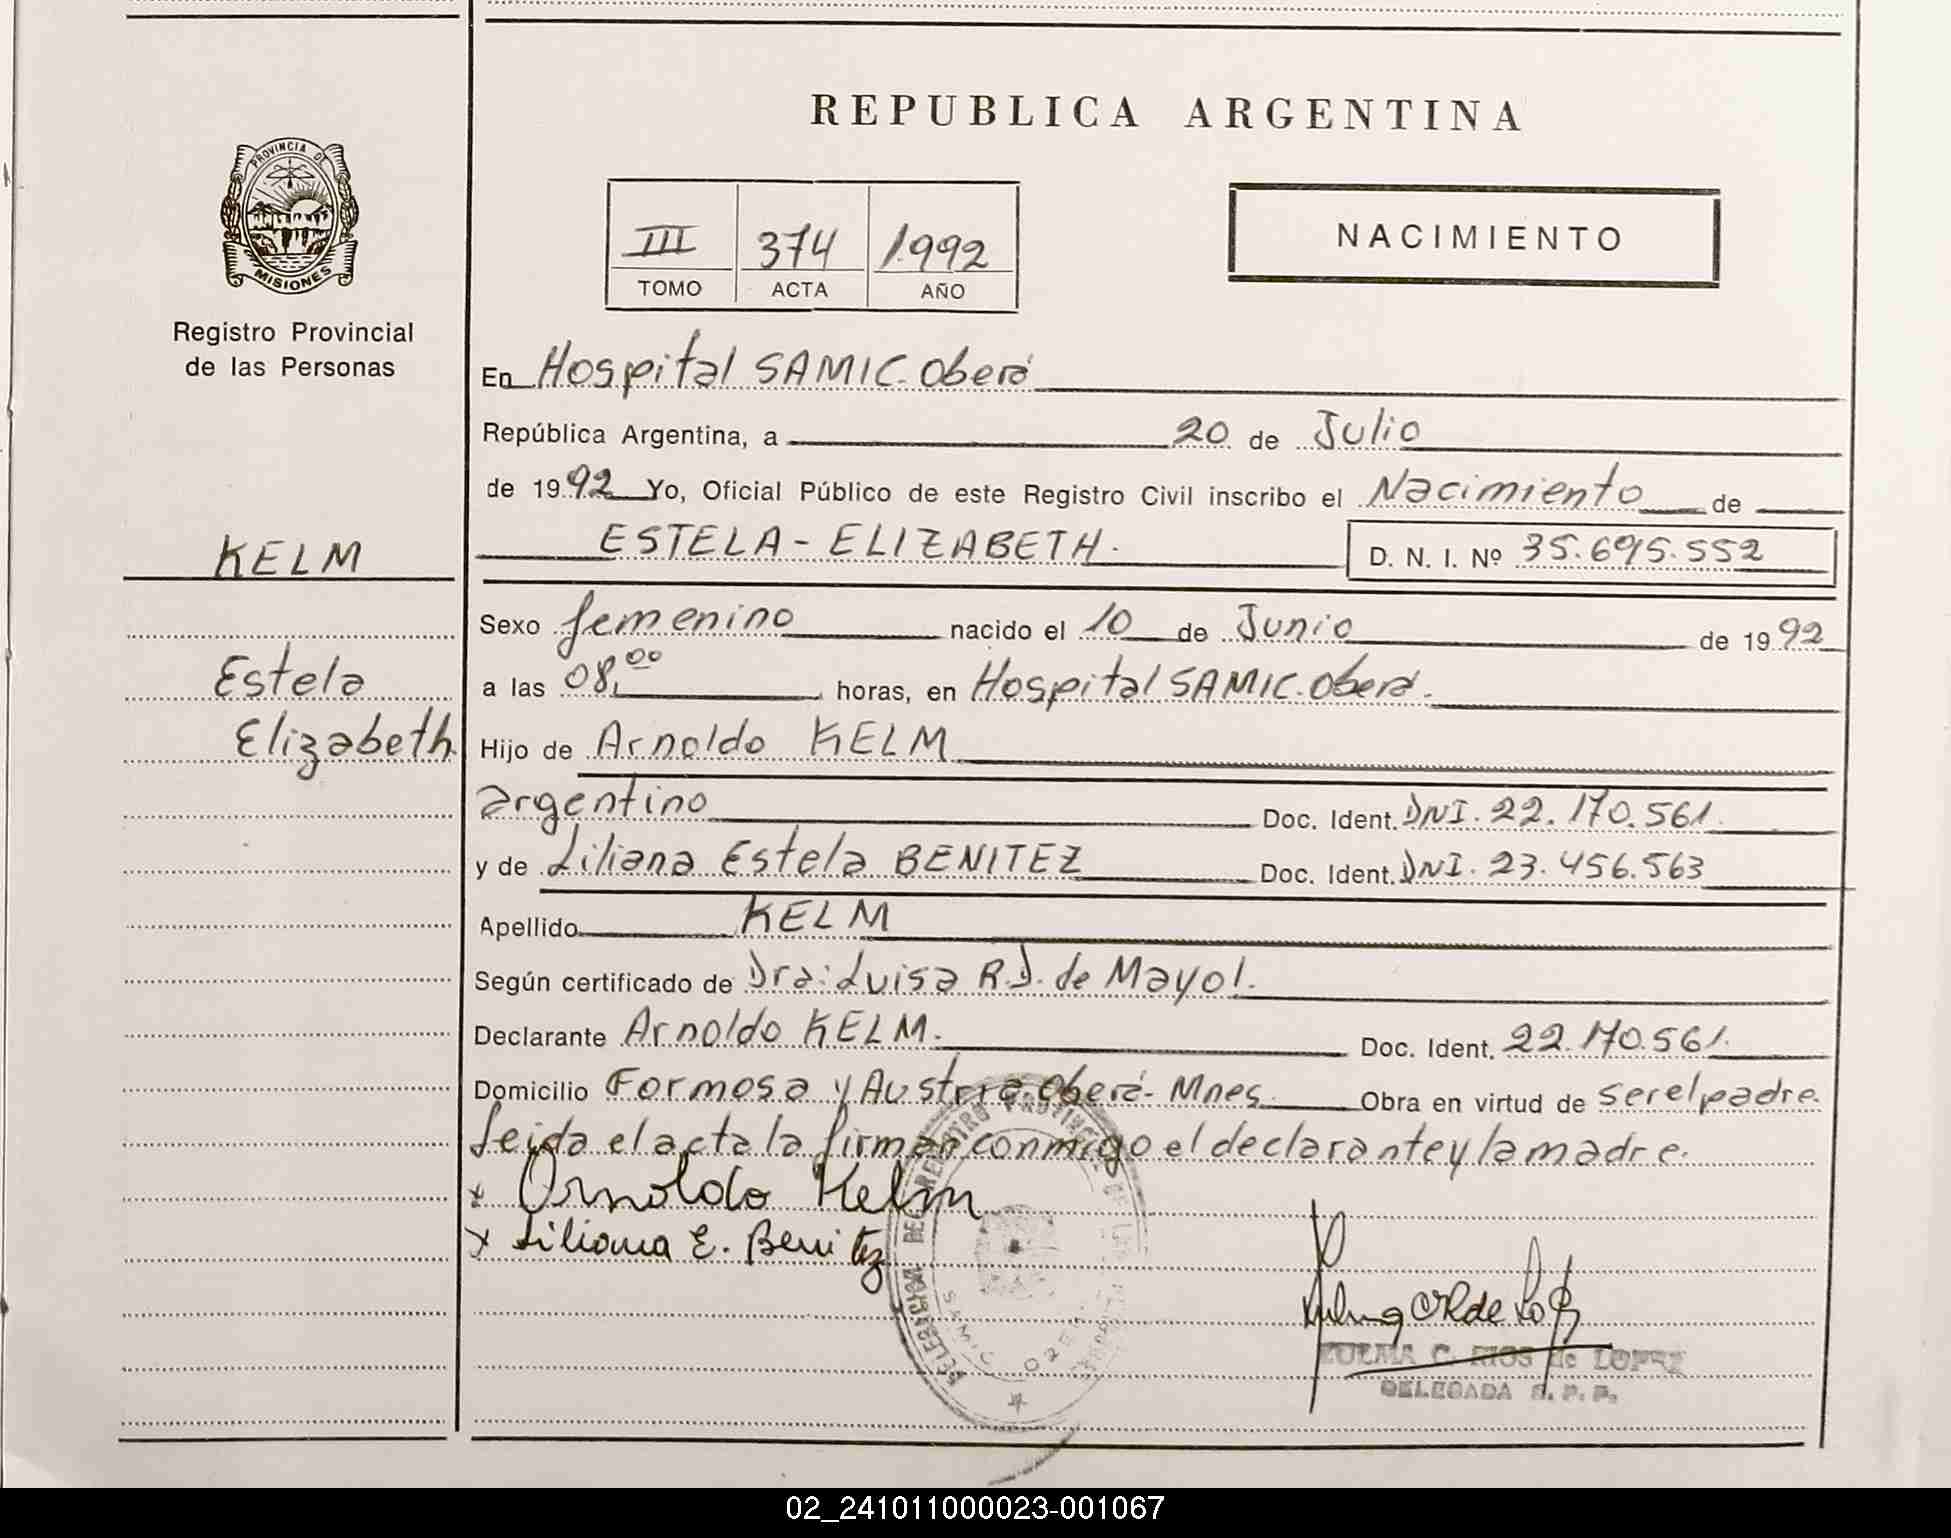 REPUBLICA ARGENTINA
PROVINCIA DE
MISIONES
Registro Provincial
de las Personas
III 374 1992
TOMO ACTA AÑO
NACIMIENTO
En Hospital SAMIC. Oberá
República Argentina, a 20 de Julio
de 1992 Yo, Oficial Público de este Registro Civil inscribo el Nacimiento de
KELM
ESTELA - ELIZABETH.
D. N. I. Nº 35.695.552
Sexo femenino nacido el 10 de Junio de 1992
Estela
a las 08,00 horas, en Hospital SAMIC. Oberá.
Elizabeth.
Hijo de Arnoldo KELM
argentino Doc. Ident. DNI. 22.170.561.
y de Liliana Estela BENITEZ Doc. Ident. DNI. 23.456.563
Apellido KELM
Según certificado de Dra: Luisa R.D. de Mayol.
Declarante Arnoldo KELM. Doc. Ident. 22.170.561.
Domicilio Formosa y Austria Oberá - Mnes. Obra en virtud de ser el padre.
Leida el acta la firman conmigo el declarante y la madre.
x Arnoldo Kelm
x Liliana E. Benitez
DELEGACION DEL REGISTRO PROVINCIAL DE LAS
SAMIC OBERA
ZULMA C. RIOS de LOPEZ
DELEGADA R. P. P.
02_241011000023-001067